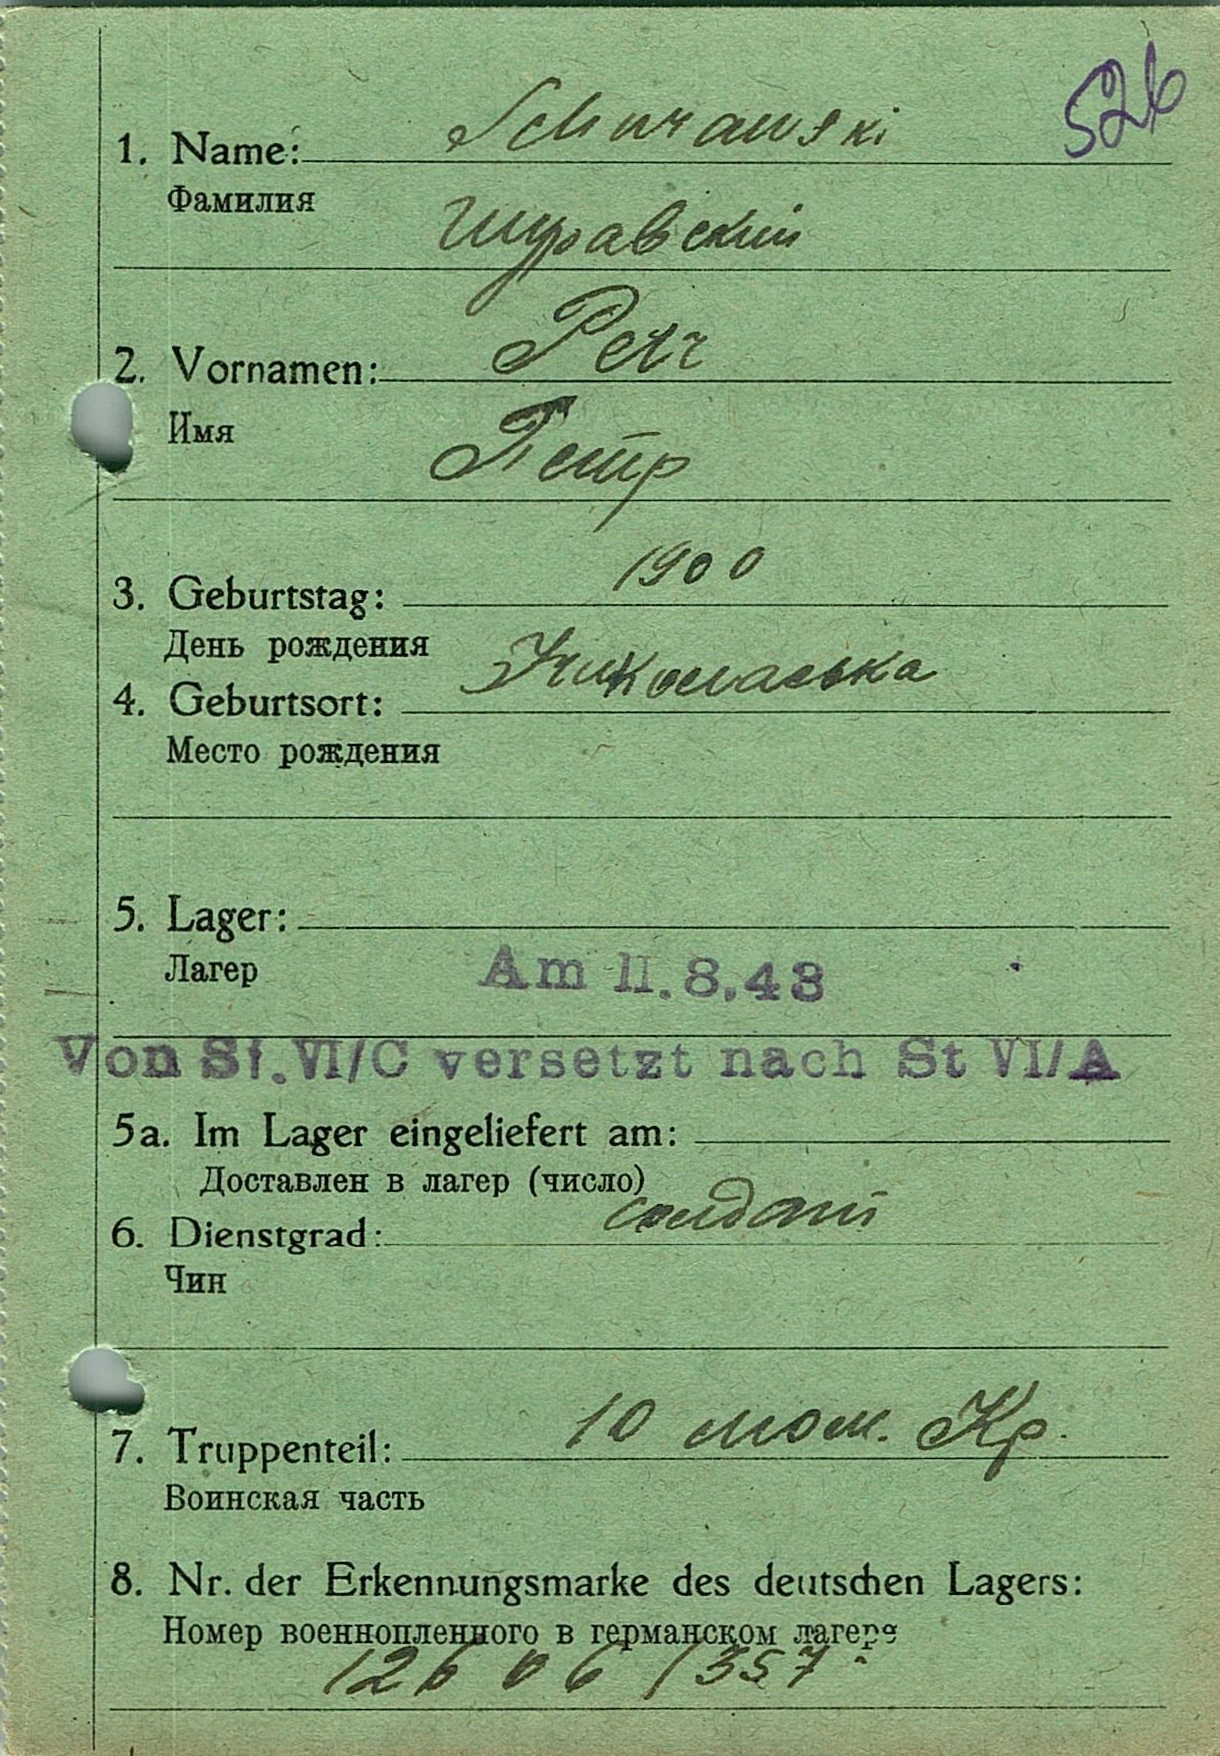 526
1. Name: Schurawski
Фамилия
Шуравский
2. Vornamen: Petr
Имя
Петр
3. Geburtstag: 1900
День рождения
4. Geburtsort:
Место рождения
5. Lager:
Лагер
Am 11.8.43
Von St. VI/C versetzt nach St VI/A
5a. Im Lager eingeliefert am:
Доставлен в лагер (число)
6. Dienstgrad: солдат
Чин
7. Truppenteil: 10 Кр.
Воинская часть
8. Nr. der Erkennungsmarke des deutschen Lagers:
Номер военнопленного в германском лагере
/357